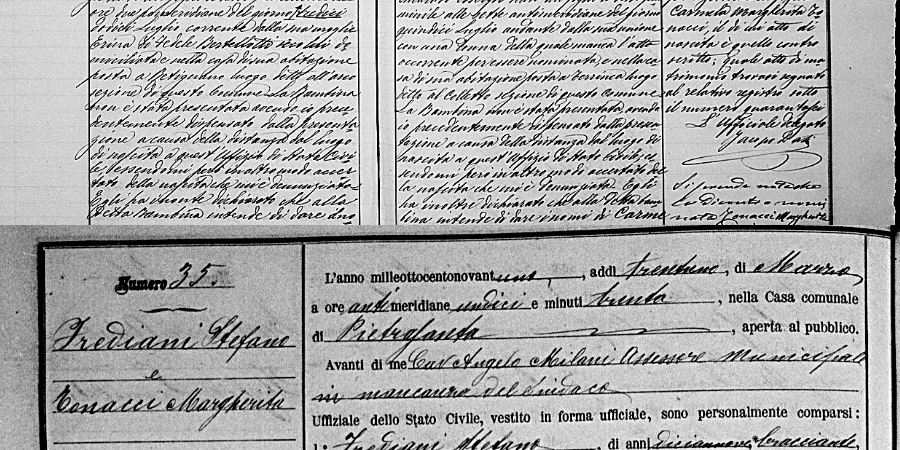 ore pomeridiane del giorno Undici
di detto Luglio corrente dalla sua moglie
Ersira di fedele Bertellotti
miciliata e nella casa di sua abitazione
posta a Retignano luogo detto all'
sezione di questo Comune La Bambina
non è stata presentata essendo io prece
dentemente dispensato dalla presenta
zione a causa della distanza dal luogo
di nascita a quest'Uffizio di Stato Civi
le, ed essendomi però in altro modo accer
tato della nascita che mi è denunziata.
Egli ha altronde dichiarato che alla
detta Bambina intende di dare
minuti alle sette antimeridiane del giorno
quindici Luglio andante dalla sua unione
con una donna della quale manca l'atto
occorrente per essere nominata e nella ca
sa di sua abitazione posta a luogo
detto al Colletto sezione di questo comune
La Bambina non è stata presentata essendo
io precedentemente dispensato dalla presen
tazione a causa della distanza dal luogo di
nascita a quest'Uffizio di Stato Civile, es
sendomi però in altro modo accertato del
la nascita che mi è denunziata. Egli
ha inoltre dichiarato che alla detta Bam
bina intende di dare i nomi di Carme
Carmela Margherita To
nacci, il di cui atto di
nascita è quello contro
scritto; quale atto di ma
trimonio trovasi segnato
al relativo registro sotto
il numero quarantasei
L'Ufficiale delegato
Si prende nota che
La Diecuta e nomi
nata Tonacci Margherita
Numero 35.
Frediani Stefano
e
Tonacci Margherita
L'anno milleottocentonovantuno, addì trentuno, di Marzo
a ore antimeridiane undici e minuti trenta, nella Casa comunale
di Pietrasanta, aperta al pubblico.
Avanti di me Cav Angelo Milani Assessore Municipale
in mancanza del Sindaco
Uffiziale dello Stato Civile, vestito in forma ufficiale, sono personalmente comparsi:
1. Frediani Stefano, di anni diciannove, bracciante,